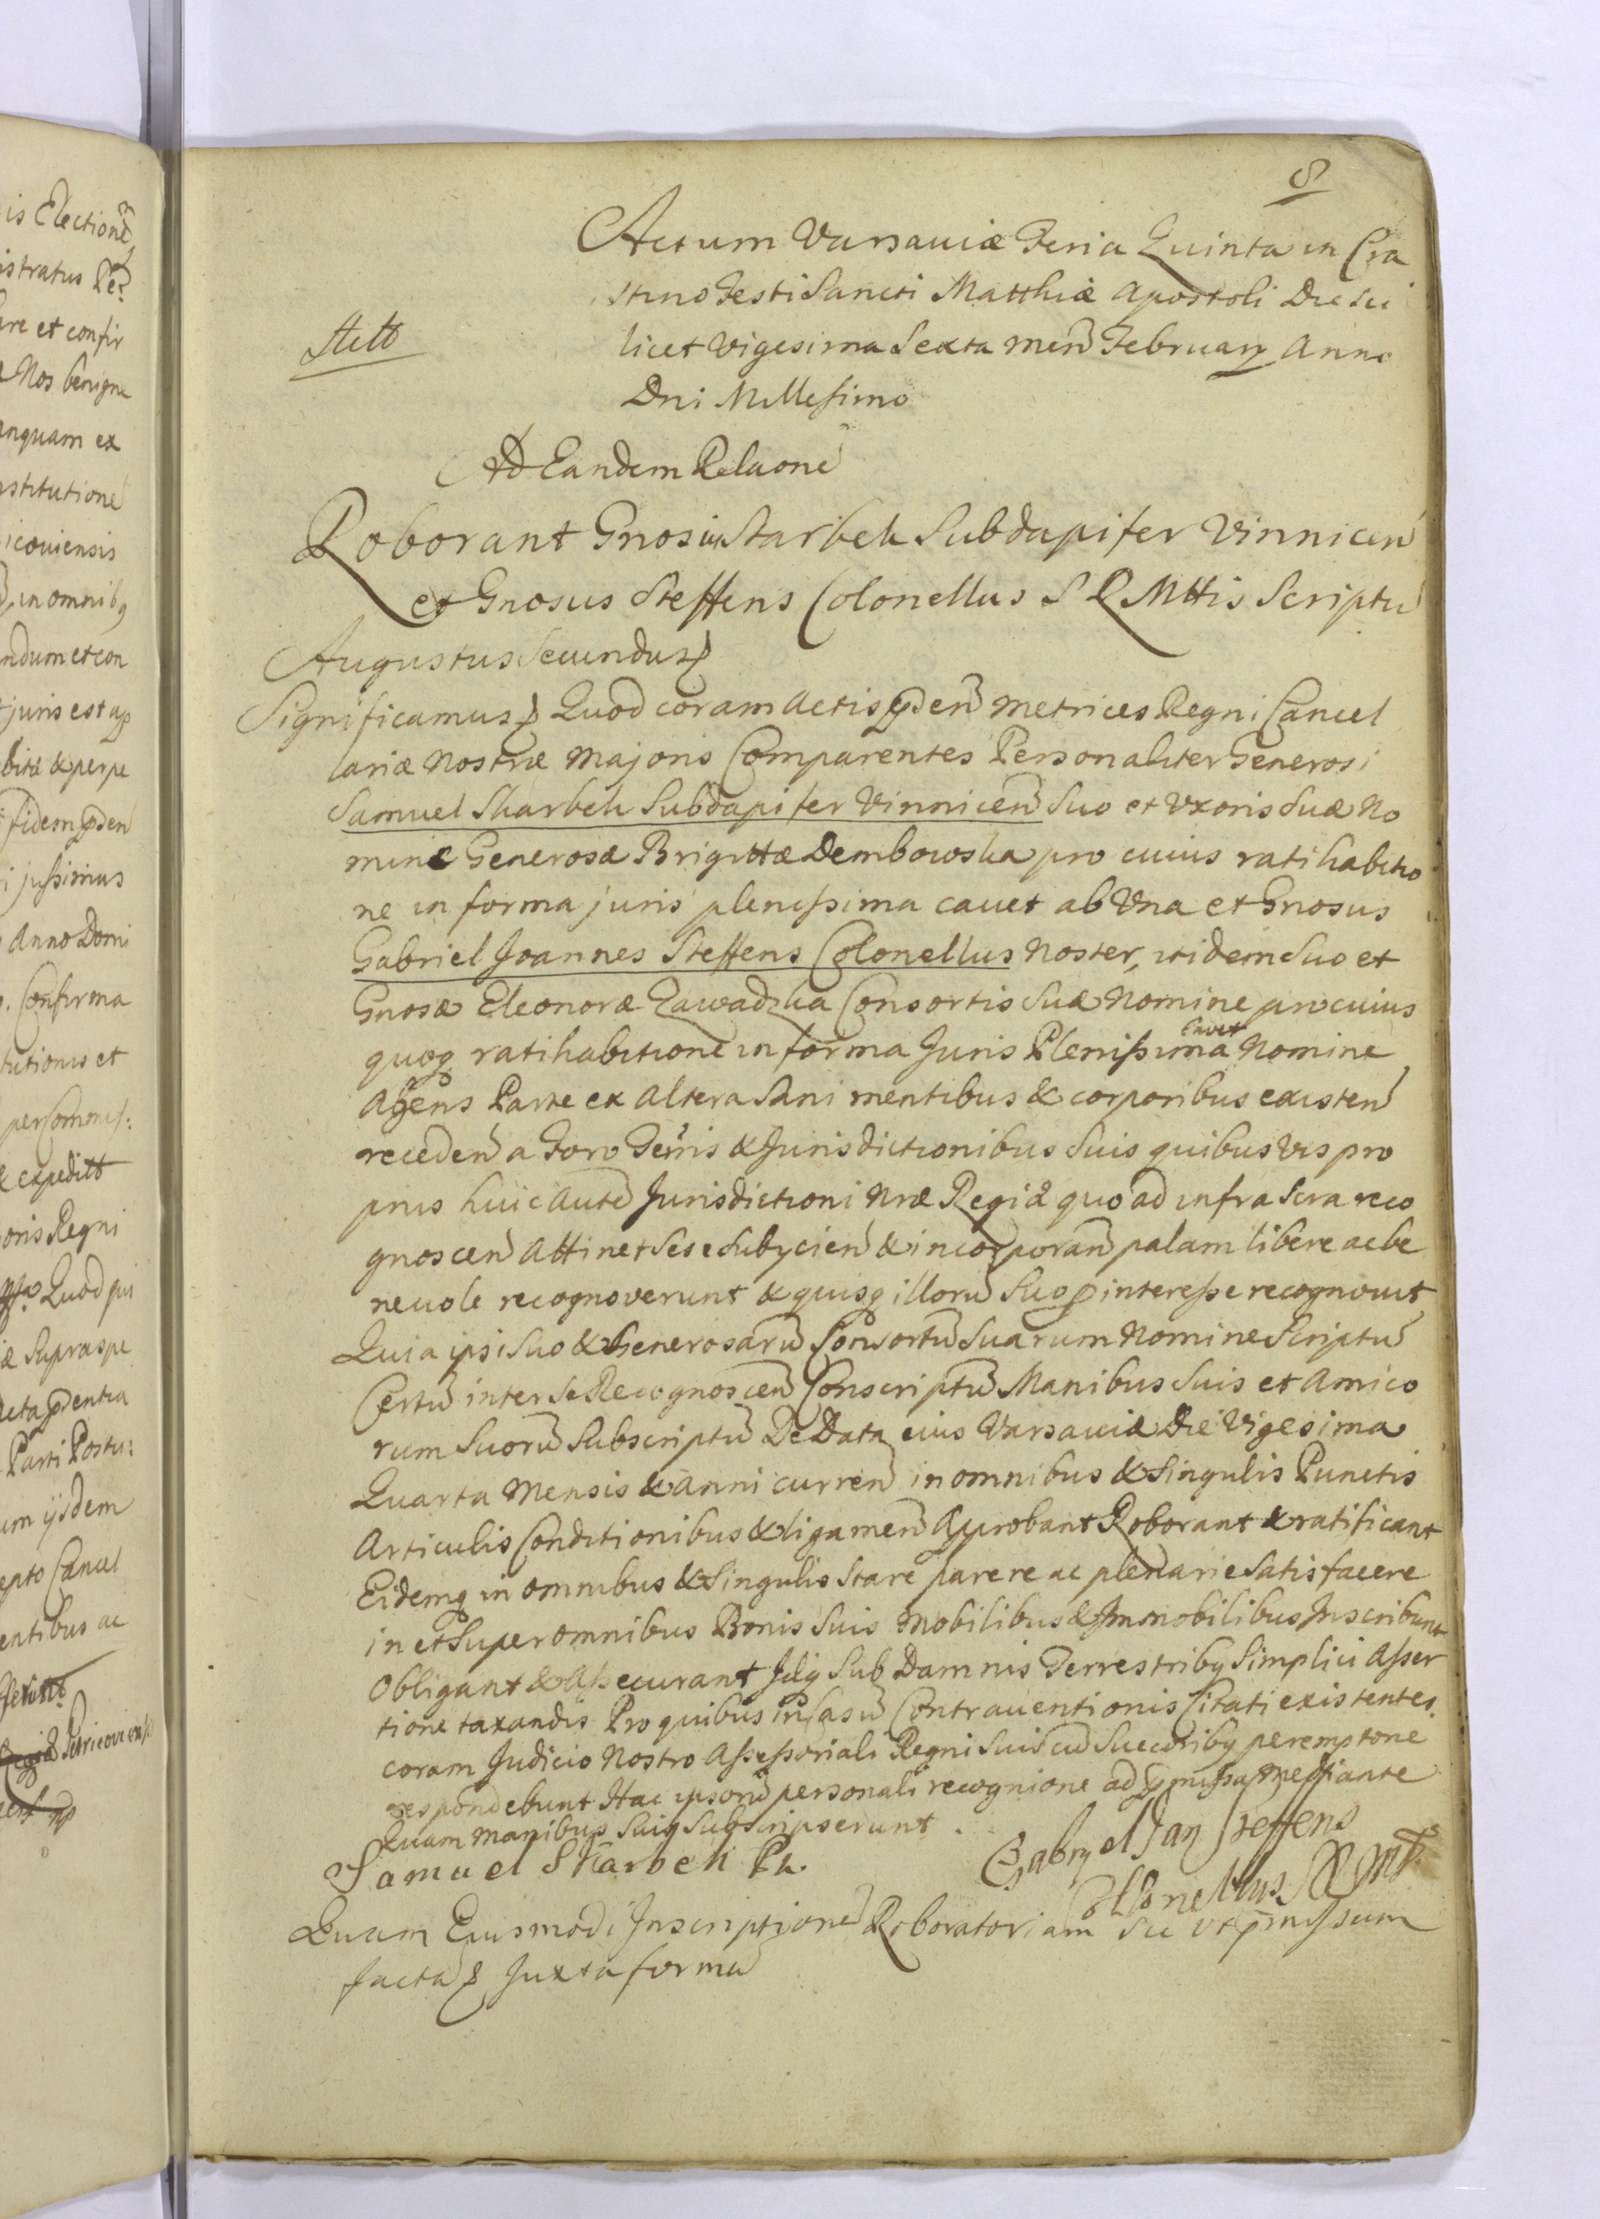 is Electione
istratus Pe
are et confir
Nos benigne
anquam ex
nstitutione
icouiensis
in omnibq
ndum et con
juris est
bitæ & perpe
fidem pden
i jussimus
Anno Domi
Confirma
tutionis et
per Commis:
& expeditt
oris Regni
Quod pri
æ Supraspe
acta pdentia
Parti Postu:
um ijsdem
epto Cancel
entibus ac
8
Actum Varsaviæ Feria Quinta in Cra
stino Festi Sancti Matthiæ Apostoli Die Sci
licet Vigesima Sexta men February Anno
Dni Millesimo
Stett
Ad Eandem Relaone
Roborant Gnosus Skarbek Subdapifer Vinnicen
et Gnosus Steffens Colonellus S R Mttis Scriptu
Augustus Secundus
Significamus Quod coram Actis pden Metrices Regni Cancel
lariæ Nostræ Majoris Comparentes Personaliter Generosi
Samuel Skarbek Subdapifer Vinnicen Suo et Uxoris Suæ No
mine Generosæ Brigittæ Dembowska pro cuius ratihabitio
ne in forma juris plenissima cauet ab Una et Gnosus
Gabriel Joannes Steffens Colonellus Noster, itidem Suo et
Gnosæ Eleonoræ Zawadzka Consortis Suæ Nomine pro cuius
quoq ratihabitione in forma Juris Plenissima cauet Nomine
Agens Parte ex Altera Sani mentibus & corporibus existen
receden a Foro Terris & Jurisdictionibus Suis quibusvis pro
prus huic aute Jurisdictioni Nræ Regiæ quo ad infra Scra reco
gnoscen Attinet Sese Subycien & incorporan palam libere ac be
nevole recognoverunt & quisq illoru Suo p interesse recognovit
Quia ipsi Suo & Generosaru Consortu Suarum Nomine Scriptu
Certu inter Se Recognoscen Conscriptu Manibus Suis et Amico
rum Suoru Subscriptu De Data eius Varsaviæ Die Vigesima
Quarta Mensis & Anni curren in omnibus & Singulis Punctis
Articulis Conditionibus & ligamen Approbant Roborant & ratificant
Eidemq in omnibus & Singulis Stare parere ac plenarie Satisfacere
in et Super omnibus Bonis Suis Mobilibus & Immobilibus Inscribunt
Obligant & Assecurant Idq Sub Damnis Terrestribq Simplici Asser
tione taxandis Pro quibus in Casu Contraventionis Citati existentes
coram Judicio Nostro Assessoriali Regni Sui cu Succoribq peremptorie
respondebunt Hac ipsoru personali recognione ad pmissa Mediante
Quam Manibus Suis Subscripserunt.
Samuel Skarbek Pk.
Gabryel Jan Steffens
Collonellus JKMT
Quam Eiusmodi Inscriptione Roboratoriam Sic ut pmissum
facta Juxta forma